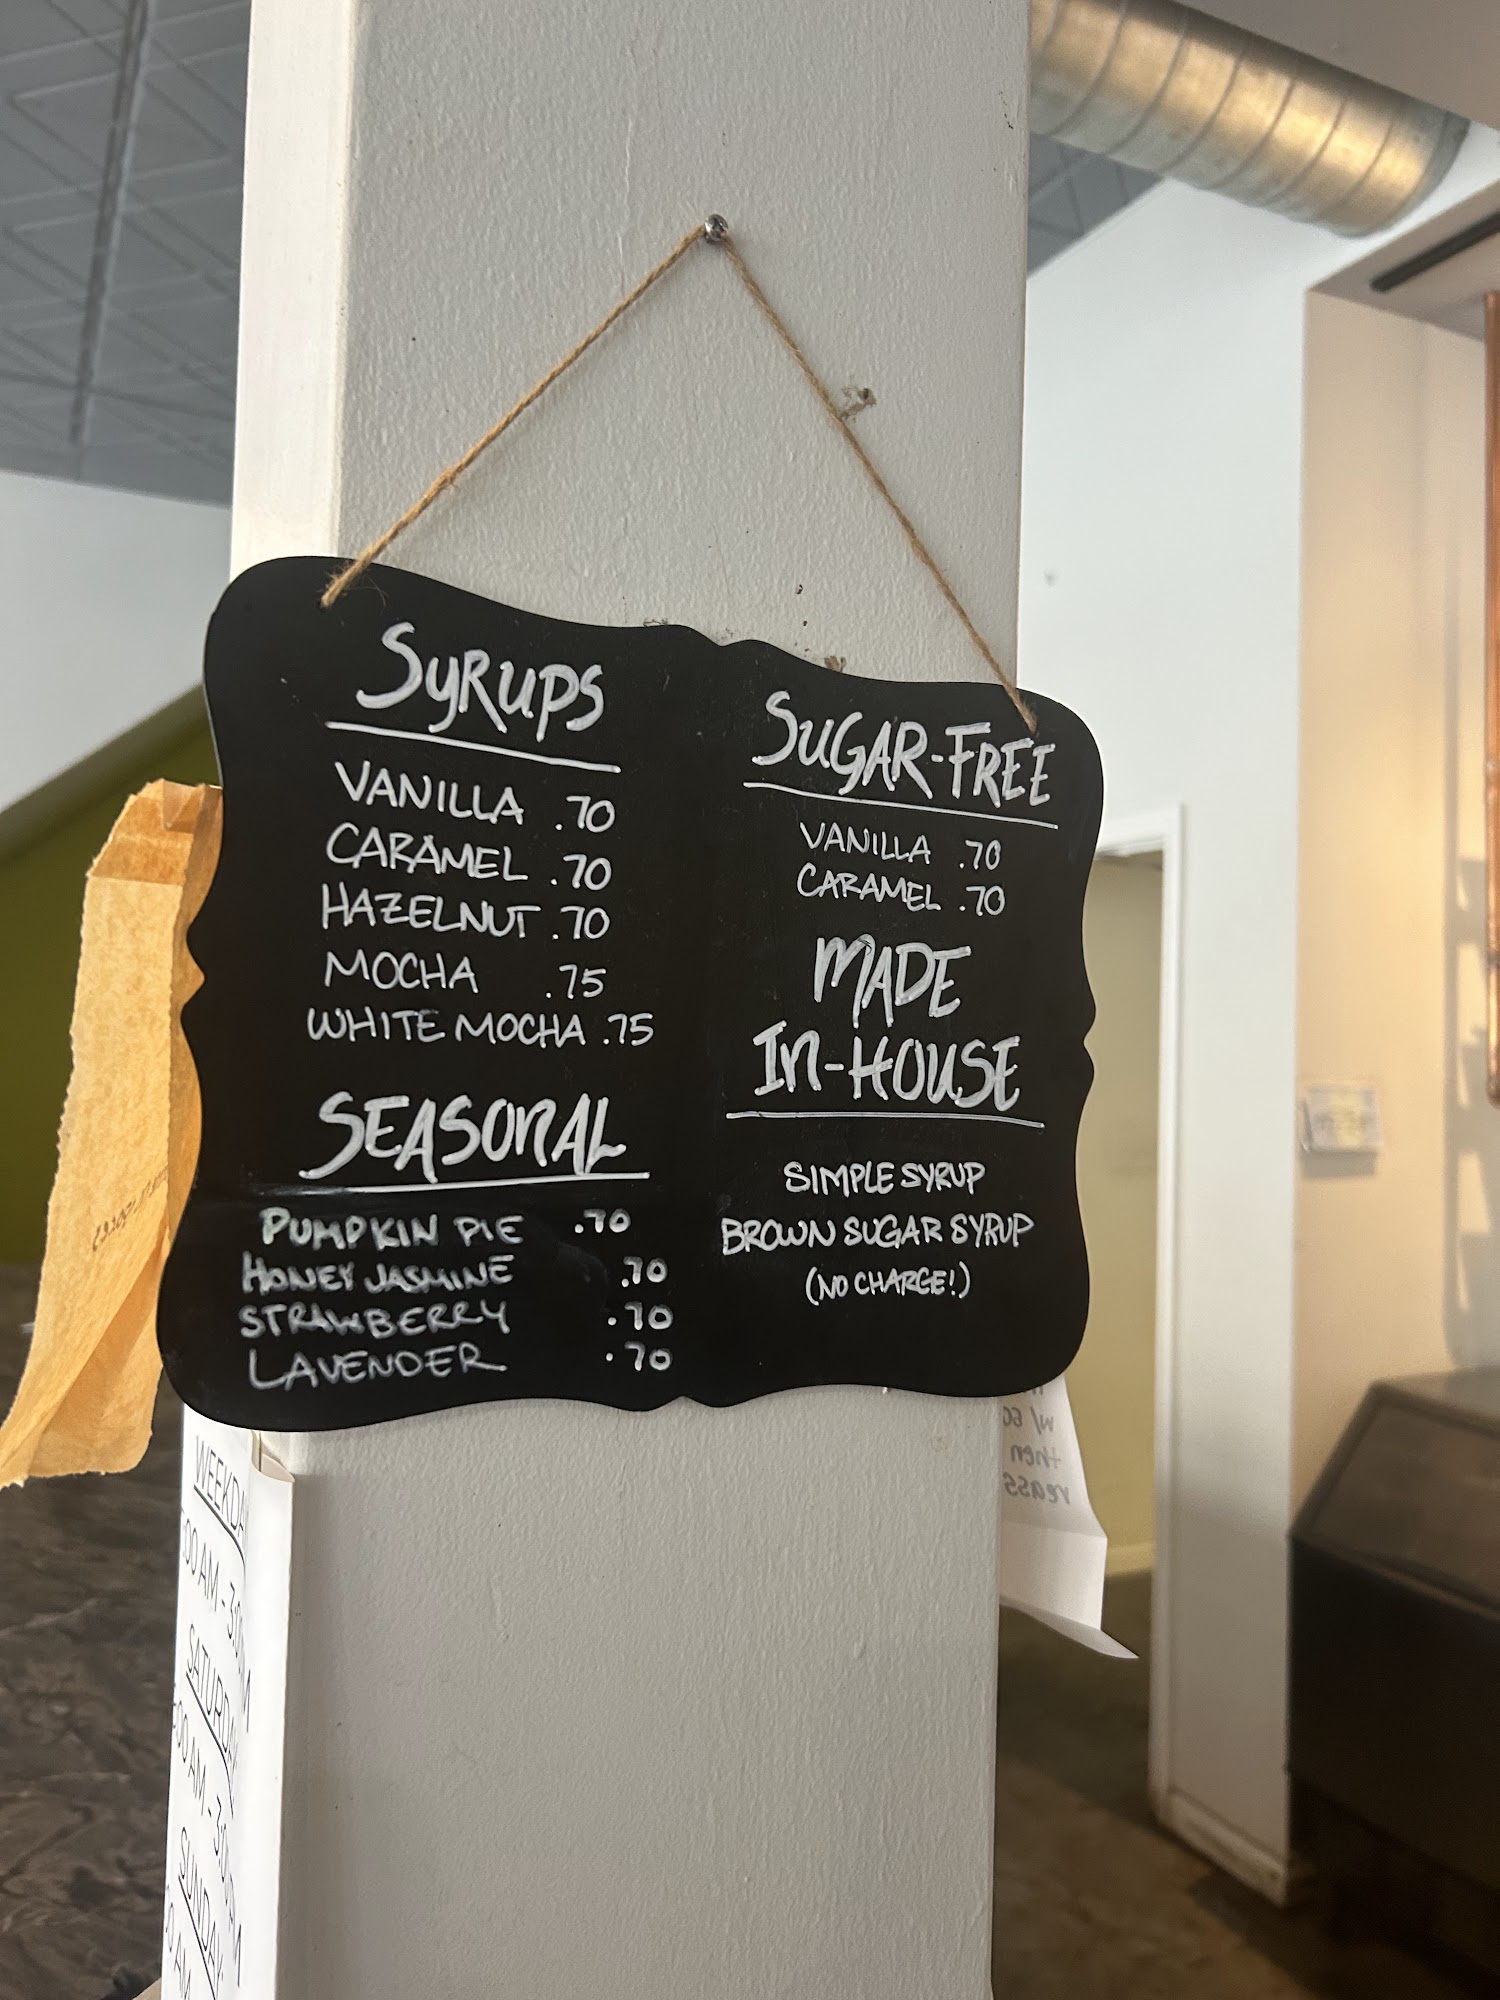 SYRUPS
VANILLA .70
CARAMEL .70
HAZELNUT .70
MOCHA .75
WHITE MOCHA .75
SEASONAL
PUMPKIN PIE .70
HONEY JASMINE .70
STRAWBERRY .70
LAVENDER .70
SUGAR-FREE
VANILLA .70
CARAMEL .70
MADE
IN-HOUSE
SIMPLE SYRUP
BROWN SUGAR SYRUP
(NO CHARGE!)
WEEKDA
:00 AM - 3:0
SATURDAY
:00 AM - 3:0
SUNDAY
AM
w/
then
reass